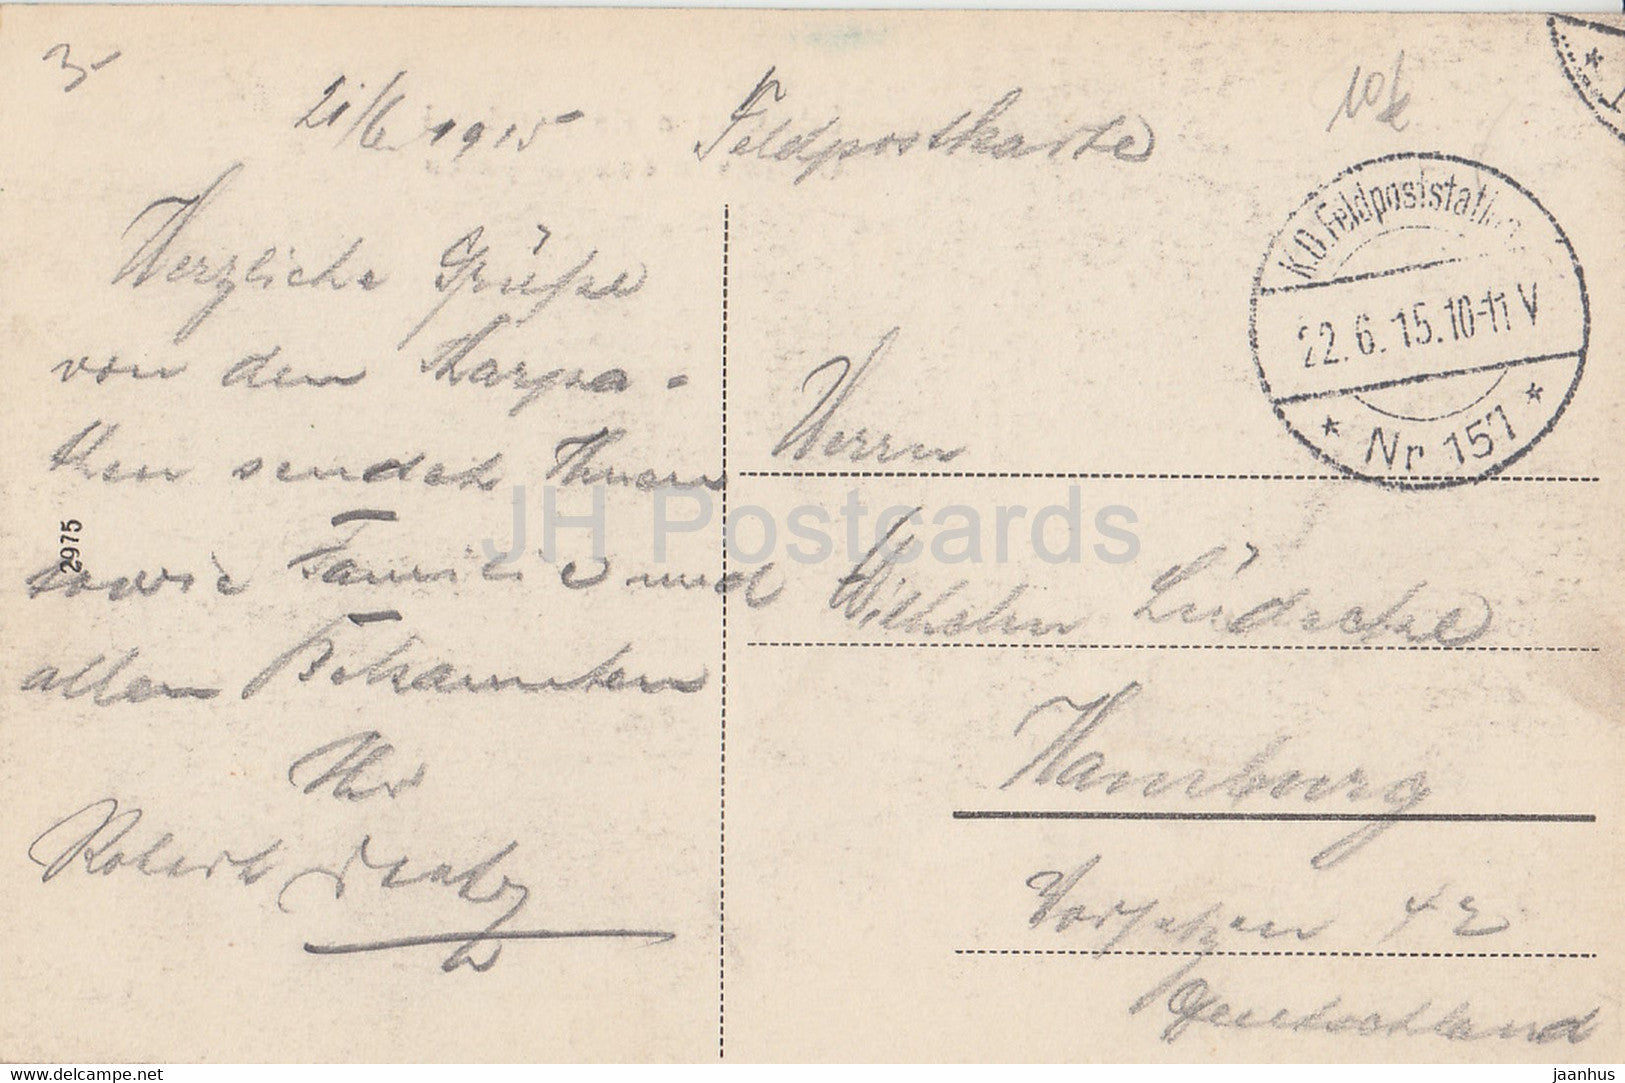 3-
21/6 1915
Feldpostkarte
Herzliche Grüße
von den Karpa-
then sendet Ihnen
sowie Familie und
allen Bekannten
Ihr
Robert
2975
Herrn
Wilhelm Lüdecke
Hamburg
Vorsetzen 42
Deutschland
K.D. Feldpoststation
22.6.15.10-11 V
* Nr 157 *
JH Postcards
delcampe.net
jaanhus